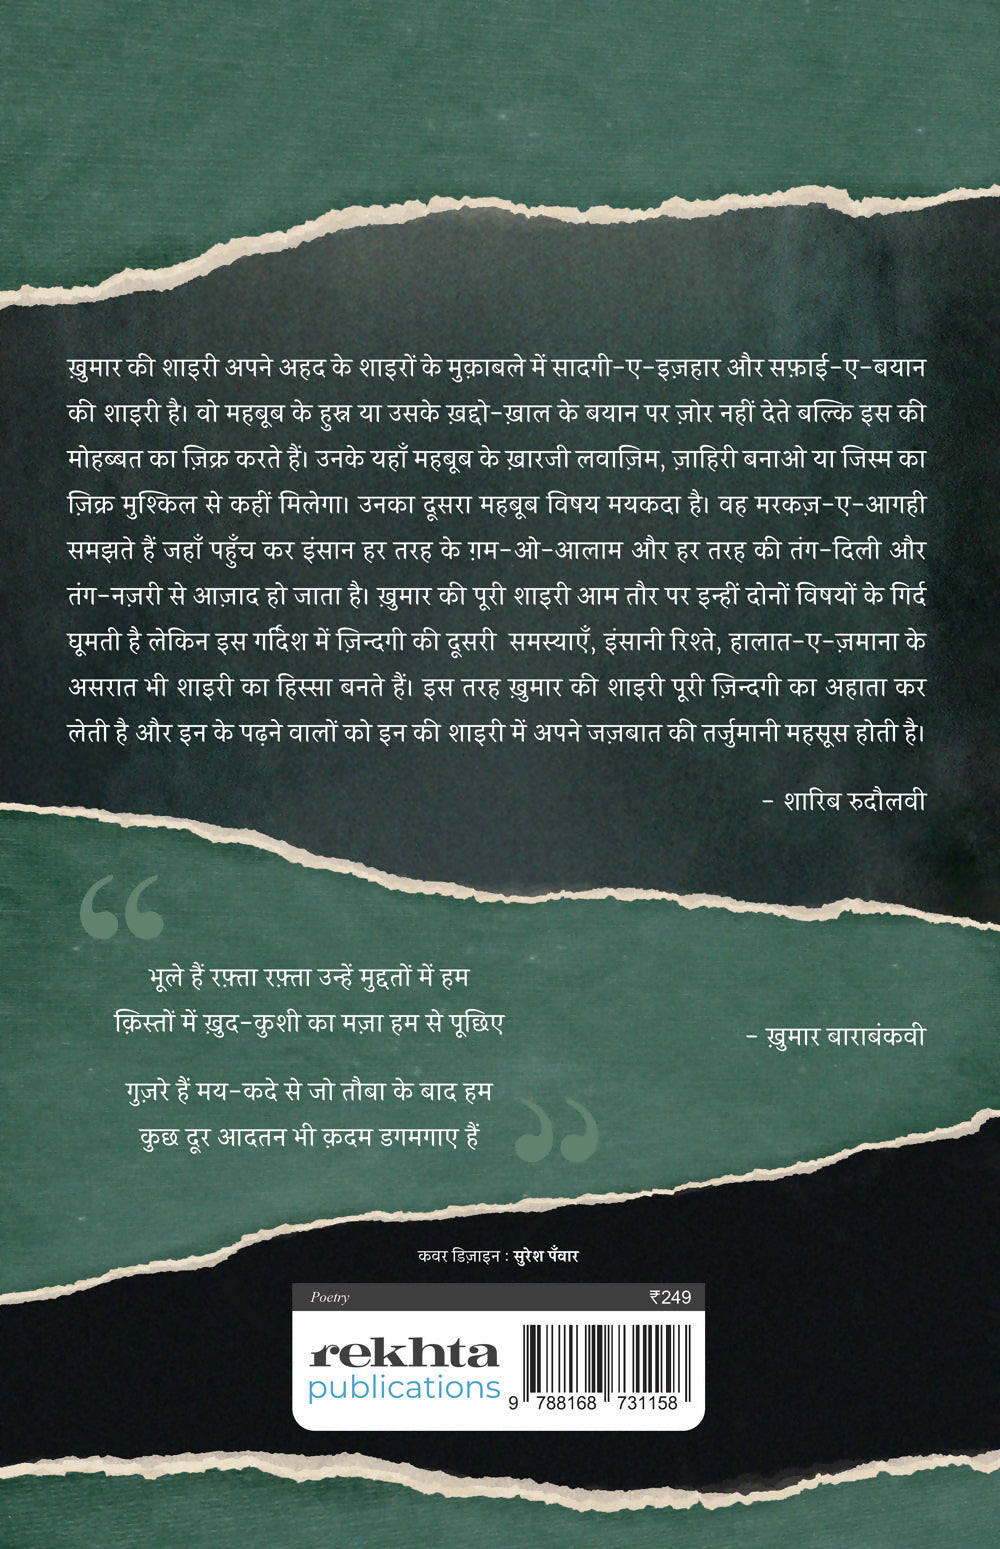 ख़ुमार की शाइरी अपने अहद के शाइरों के मुक़ाबले में सादगी-ए-इज़हार और सफ़ाई-ए-बयान
की शाइरी है। वो महबूब के हुस्न या उसके ख़द्दो-ख़ाल के बयान पर ज़ोर नहीं देते बल्कि इस की
मोहब्बत का ज़िक्र करते हैं। उनके यहाँ महबूब के ख़ारजी लवाज़िम, ज़ाहिरी बनाओ या जिस्म का
ज़िक्र मुश्किल से कहीं मिलेगा। उनका दूसरा महबूब विषय मयकदा है। वह मरकज़-ए-आगही
समझते हैं जहाँ पहुँच कर इंसान हर तरह के ग़म-ओ-आलाम और हर तरह की तंग-दिली और
तंग-नज़री से आज़ाद हो जाता है। ख़ुमार की पूरी शाइरी आम तौर पर इन्हीं दोनों विषयों के गिर्द
घूमती है लेकिन इस गर्दिश में ज़िन्दगी की दूसरी समस्याएँ, इंसानी रिश्ते, हालात-ए-ज़माना के
असरात भी शाइरी का हिस्सा बनते हैं। इस तरह ख़ुमार की शाइरी पूरी ज़िन्दगी का अहाता कर
लेती है और इन के पढ़ने वालों को इन की शाइरी में अपने जज़बात की तर्जुमानी महसूस होती है।
- शारिब रुदौलवी
“
भूले हैं रफ़्ता रफ़्ता उन्हें मुद्दतों में हम
क़िस्तों में ख़ुद-कुशी का मज़ा हम से पूछिए
- ख़ुमार बाराबंकवी
गुज़रे हैं मय-कदे से जो तौबा के बाद हम
कुछ दूर आदतन भी क़दम डगमगाए हैं
”
कवर डिज़ाइन : सुरेश पँवार
Poetry ₹249
rekhta
publications
9 788168 731158